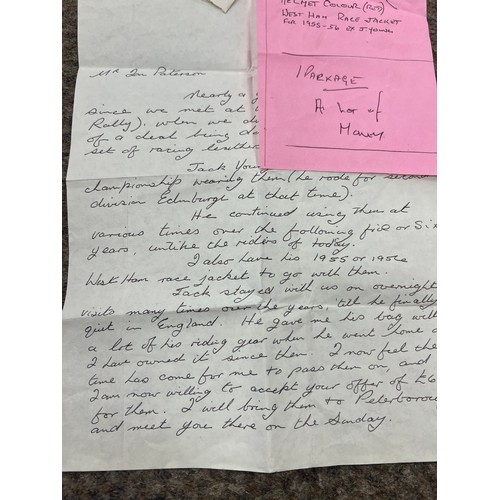 HELMET COLOUR (RED)
WEST HAM RACE JACKET
FOR 1955-56 EX J YOUNG
1 PARKAGE
A Lot of
Money
Mr Ian Paterson
Nearly a
since we met at
Rally), when we
of a deal being
set of racing leather
Jack You
championship wearing them (he rode for second
division Edinburgh at that time).
He continued using them at
various times over the following five or six
years, unlike the riders of today.
I also have his 1955 or 1956
West Ham race jacket to go with them.
Jack stayed with us on overnight
visits many times over the years, till he finally
quit in England. He gave me his bag with
a lot of his riding gear when he went home
I have owned it since then. I now feel the
time has come for me to pass them on, and
I am now willing to accept your offer of £6
for them. I will bring them to Peterborou
and meet you there on the Sunday.